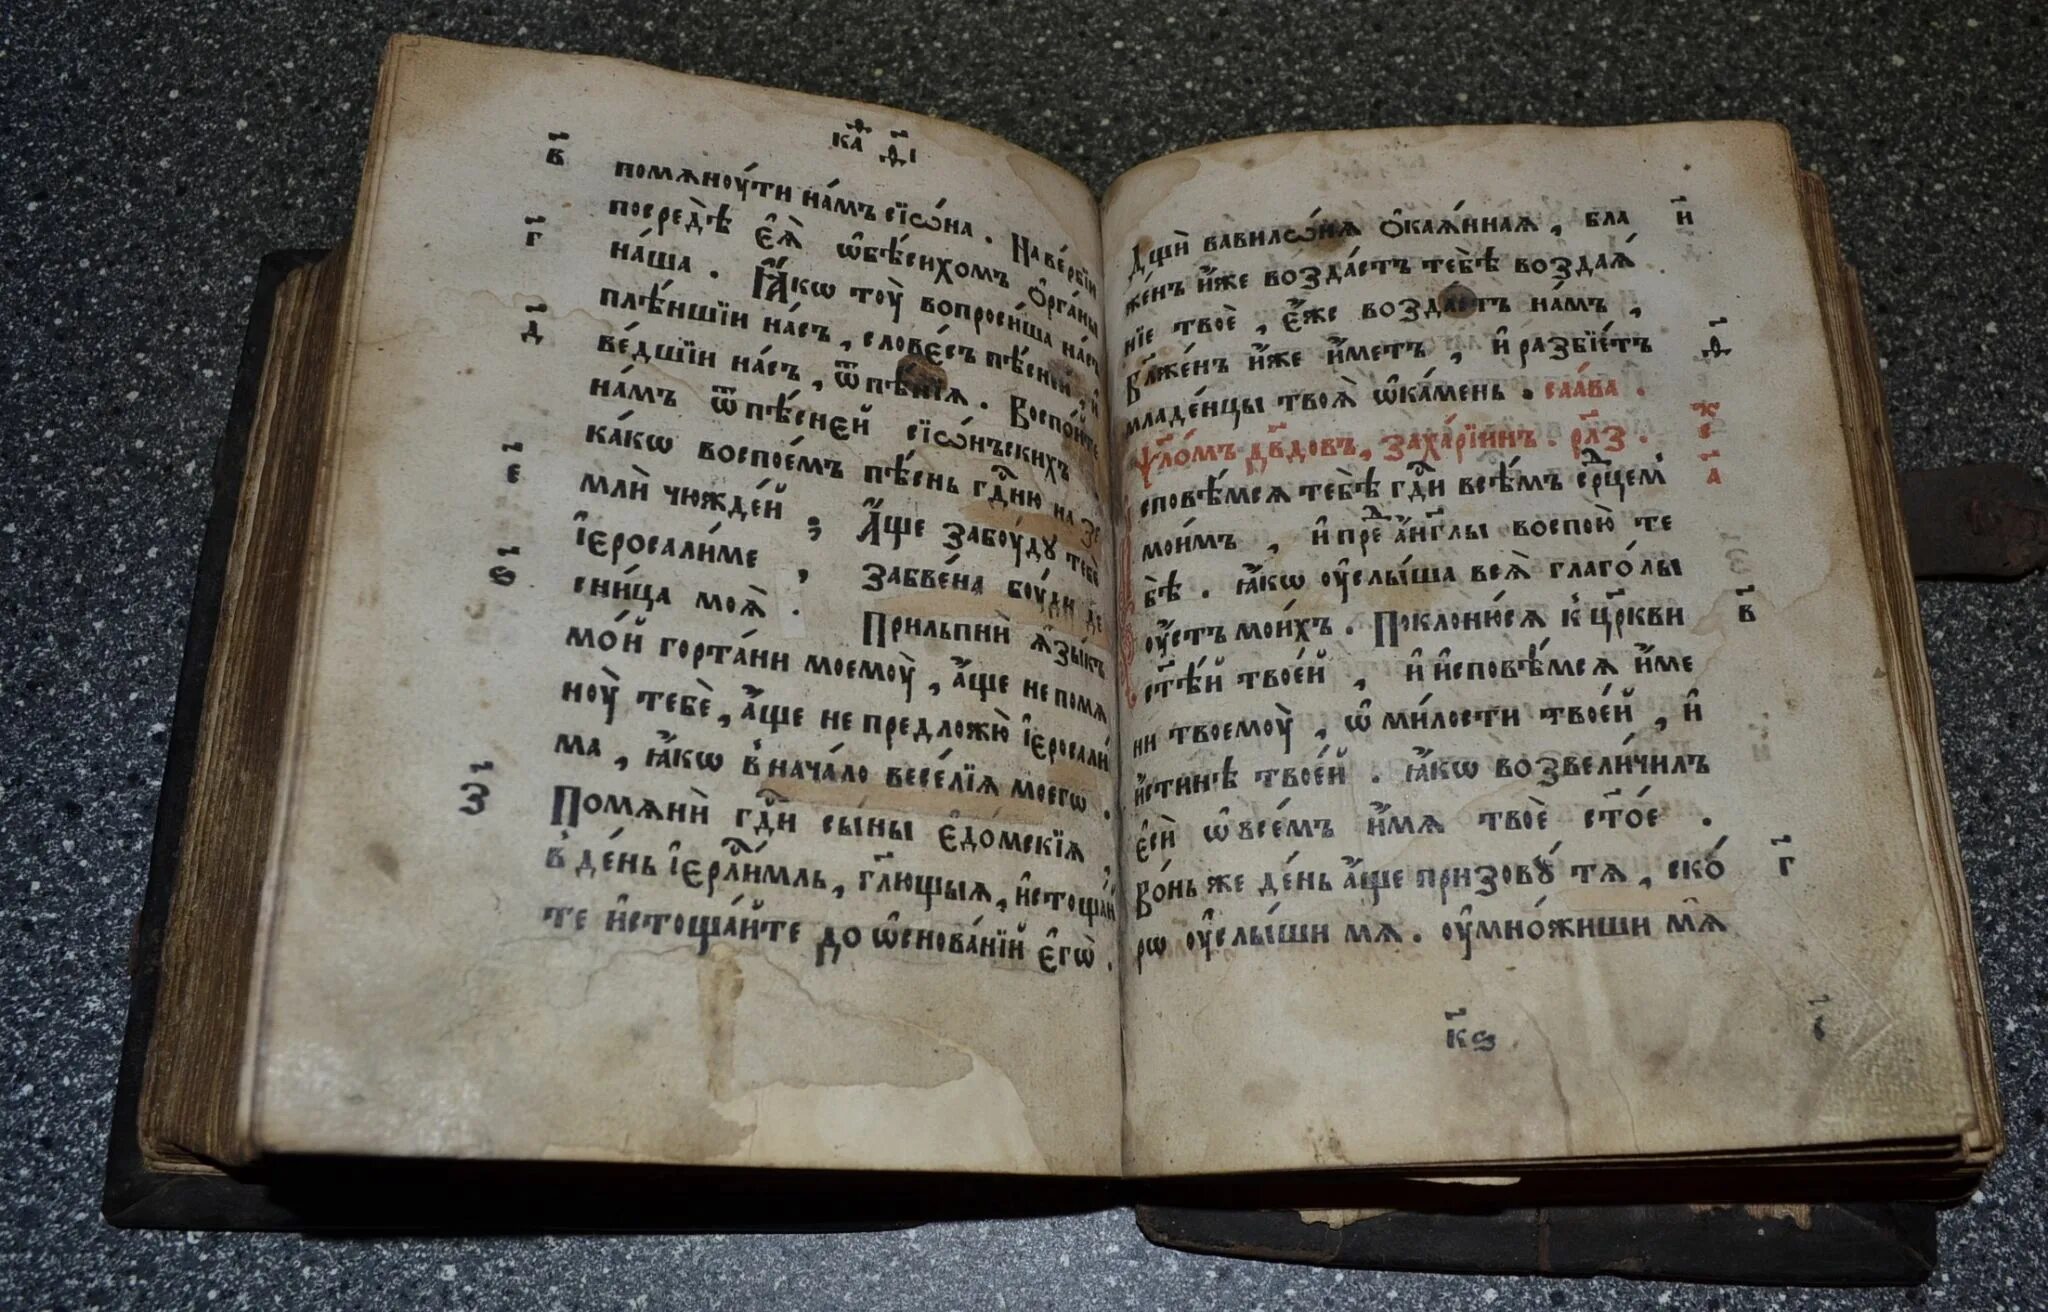 ка҃ѳ҃і
в҃
помѧноу́ти на́мъ сїѡ́на . На ве́рбїи
посредѣ̀ є҆ѧ̀ ѡ҆бѣ́сихомъ ѻ҆рга́ны
г҃
на́ша . Ꙗ҆́кѡ тоу̀ вопроси́ша на́съ
плѣ́ншїи на́съ , слове́съ пѣ́сней , и҆
ве́дшїи на́съ , ѿ пѣ́нїѧ . Воспо́йте
д҃
на́мъ ѿ пѣ́сней сїѡ́нъскихъ .
ка́кѡ воспое́мъ пѣ́снь гдⷭ҇ню на зе
млѝ чюжде́й ; А҆́ще забоу́дꙋ тебѐ
є҃
і҆єросали́ме , забве́на боу́ди де
сни́ца моѧ̀ . Прильпнѝ ѧ҆зы́къ
ѕ҃
мо́й горта́ни моемоу̀ , а҆́ще не помѧ
ноу̀ тебѐ , а҆́ще не предложю̀ і҆єросали́
ма , ꙗ҆́кѡ в҆ нача́ло весе́лїѧ моегѡ .
з҃
Помѧнѝ гдⷭ҇и сы́ны є҆до́мскїѧ ,
в҆ де́нь і҆єрⷭ҇ли́мль , гл҃ющыѧ , и҆стоща́й
те и҆стоща́йте до ѡ҆снова́нїй є҆гѡ̀ .
Дщѝ вавилѡ́нѧ ѻ҆каѧ́ннаѧ , бла
и҃
же́нъ и҆́же возда́стъ тебѣ̀ воздаѧ́
нїе твоѐ , є҆́же возда́стъ на́мъ ,
Бл҃же́нъ и҆́же и҆́метъ , и҆ разбїе́тъ
ѳ҃
младе́нцы твоѧ̀ ѡ҆ ка́мень . сла́ва .
Ѱл҃о́мъ дв҃довъ , заха́рїинъ . рл҃з .
а҃
сповѣ́мсѧ тебѣ̀ гдⷭ҇и всѣ́мъ срⷣцемъ
мои́мъ , и҆ преⷣ а҆́нг҃лы воспою̀ те
бѣ̀ . ꙗ҆́кѡ оу҆слы́ша всѧ̀ глаго́лы
оу҆́стъ мои́хъ . Поклоню́сѧ к҆ цр҃кви
в҃
ст҃ѣ́й твое́й , и҆ и҆сповѣ́мсѧ и҆́ме
ни твоемоу̀ , ѡ҆ ми́лости твое́й , и҆
и҆́стинѣ твое́й . ꙗ҆́кѡ возвели́чилъ
є҆сѝ ѡ҆ всѣ́мъ и҆́мѧ твоѐ ст҃о́е .
Во́нь же де́нь а҆́ще призовꙋ́ тѧ , ско́
г҃
рѡ оу҆слы́ши мѧ . оу҆мно́жиши мѧ̀
к҃ѕ